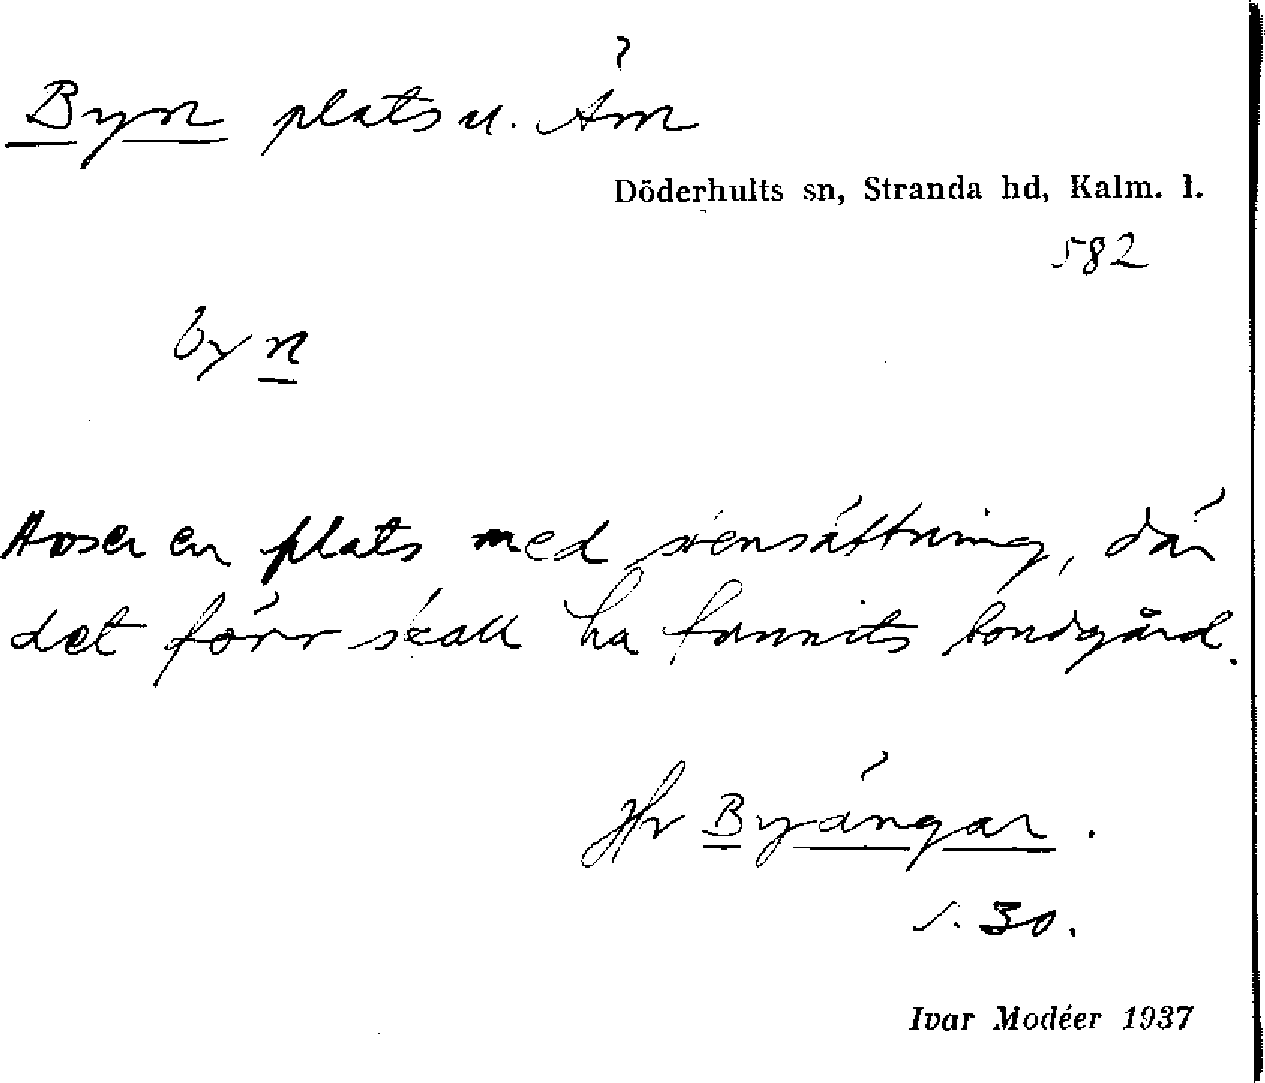 Byn plats u. Äm
Döderhults sn, Stranda hd, Kalm. l.
582
byn
Avser en plats med stensättning, där
det förr skall ha funnits bondgård.
Jfr Byängar.
s. 30.
Ivar Modéer 1937